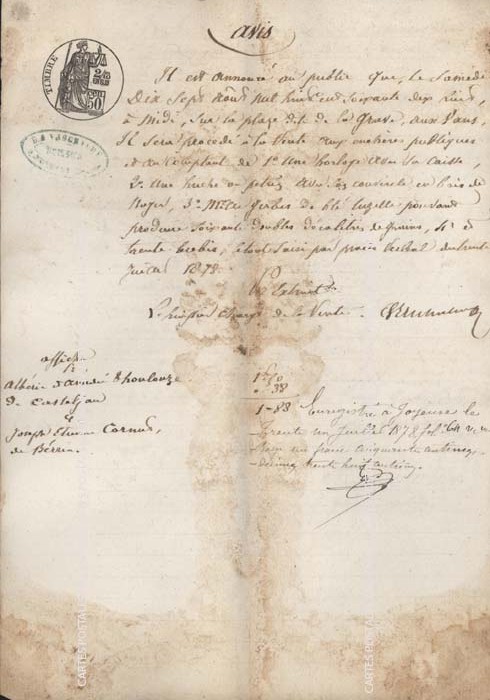 avis
TIMBRE
Il est annoncé au public que, le samedi
Dix Sept août mil huit cent soixante dix huit,
à midi, sur la place dit de la Grave, aux Vans,
Il sera procédé à la Vente aux enchères publiques
et au comptant de 1° Une horloge avec sa caisse,
2° Une huche à pétrir avec son couvercle en bois de
Noyer, 3° gerbes de blé pouvant
produire soixante doubles décalitres de grains, 4° et
trente brebis, le tout saisi par procès verbal du trente
Juillet 1878.
Pr Extrait
L'huissier chargé de la Vente.
affiche
de Castaljau
et
Joseph Etienne Cornus,
de Berrias.
1.50
. 38
1-88 Enregistré à Joyeuse le
trente un Juillet 1878 fol. 64 v.
Reçu un franc cinquante centimes,
décimes trente huit centimes.
CARTES POSTALES
CARTES POSTALES